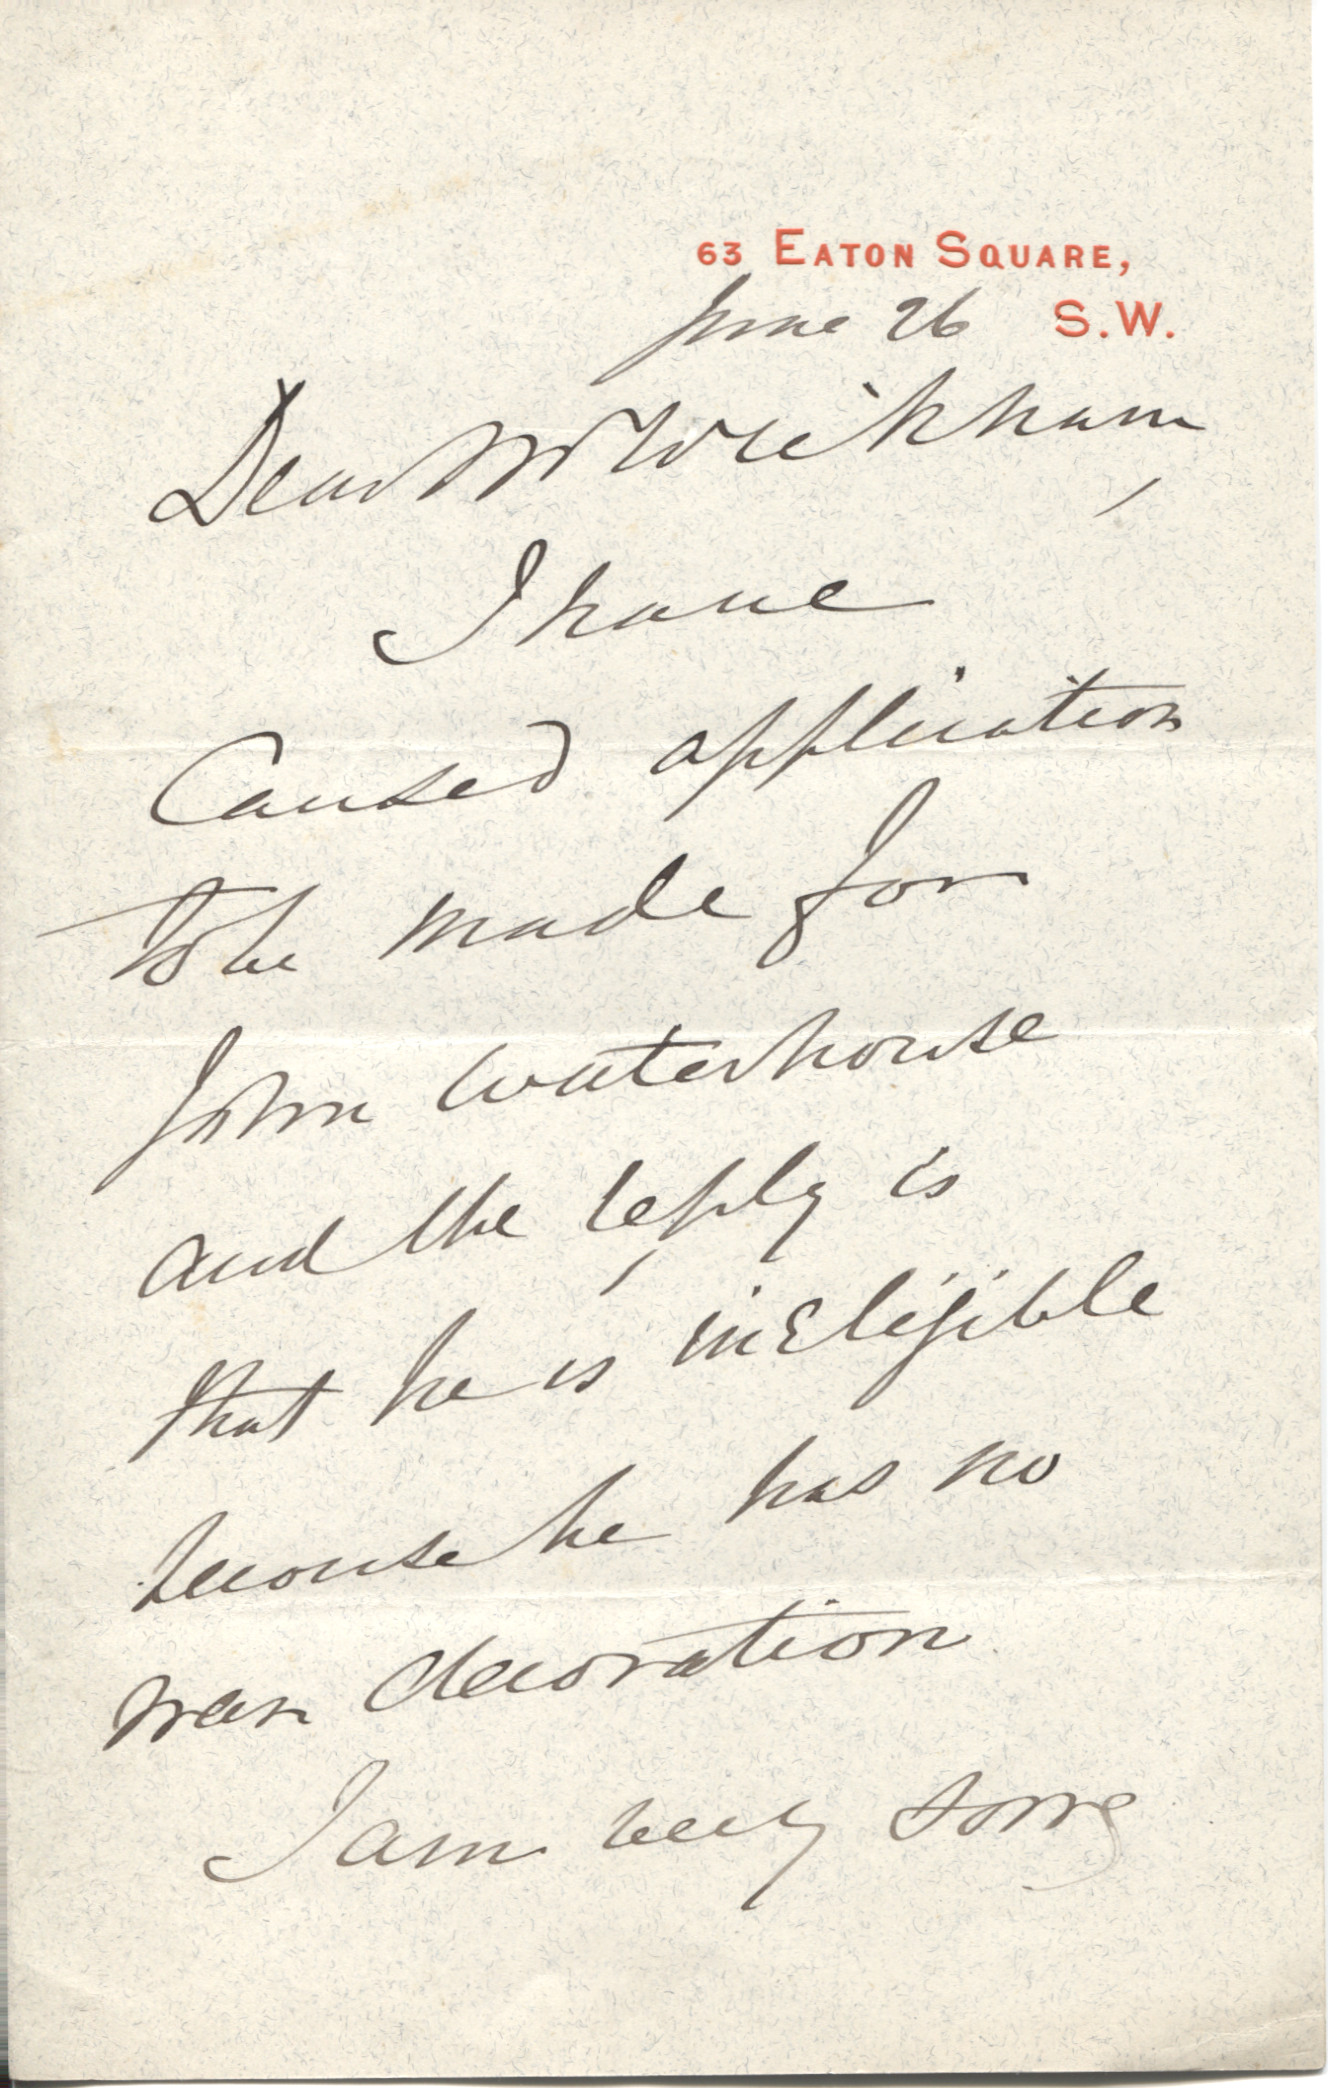 63 EATON SQUARE,
June 26 S.W.
Dear Mr Wickham,
I have
Caused application
to be made for
John Waterhouse
and the reply is
that he is inEligible
because he has no
war decoration
I am very sorry